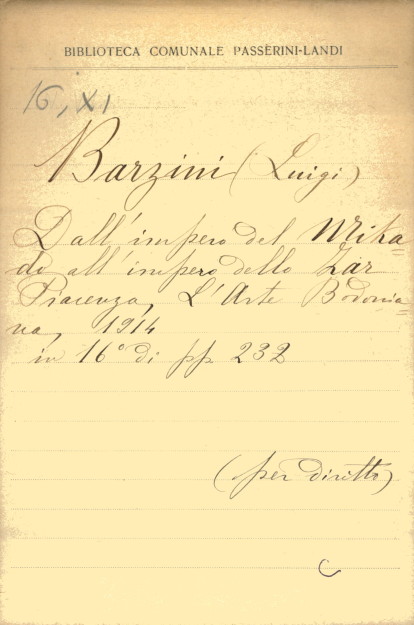 BIBLIOTECA COMUNALE PASSERINI-LANDI
16, XI
Barzini (Luigi)
Dall'impero del Mika=
do all'impero dello Zar
Piacenza, L'Arte Bodonia=
na, 1914
in 16° di pp. 232
(per diritto)
C